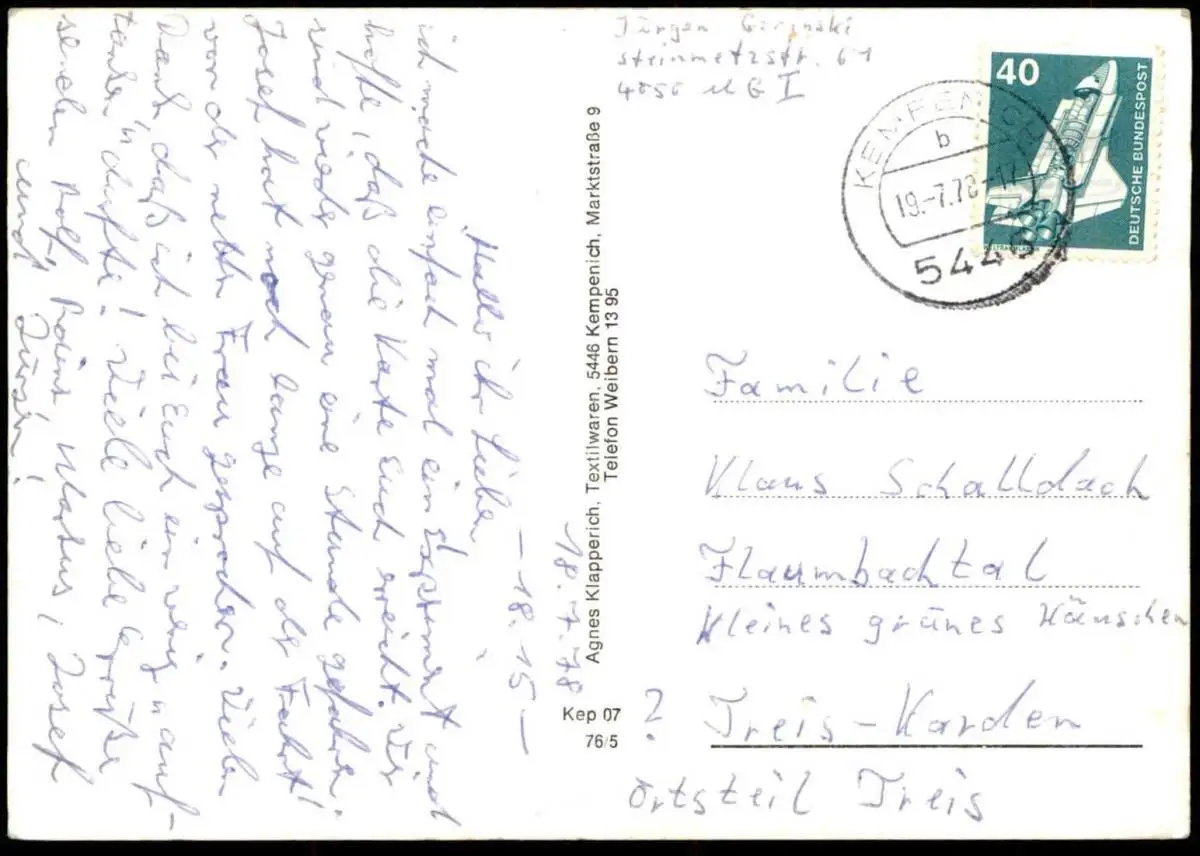 18.7.78
- 18.15 -
Hallo ihr Lieben,
ich möchte einfach mal ein Experiment und
hoffe, daß die Karte Euch erreicht. Wir
sind wieder genau eine Stunde gefahren.
Josef hat noch lange auf der Fahrt
von der netten Frau gesprochen. Vielen
Dank, daß ich bei Euch ein wenig "auf-
tanken" durfte! Viele liebe Grüße
senden Rolf, Markus, Josef
und Jürgen!
Agnes Klapperich, Textilwaren, 5446 Kempenich, Marktstraße 9
Telefon Weibern 13 95
Kep 07
76/5
Jürgen
Steinmetzstr. 61
4050 MG I
40
DEUTSCHE BUNDESPOST
KEMPENICH
b
19.-7.78-17
5446
Familie
Klaus Schalldach
Flaumbachtal
Kleines grünes Häuschen
? Treis-Karden
Ortsteil Treis